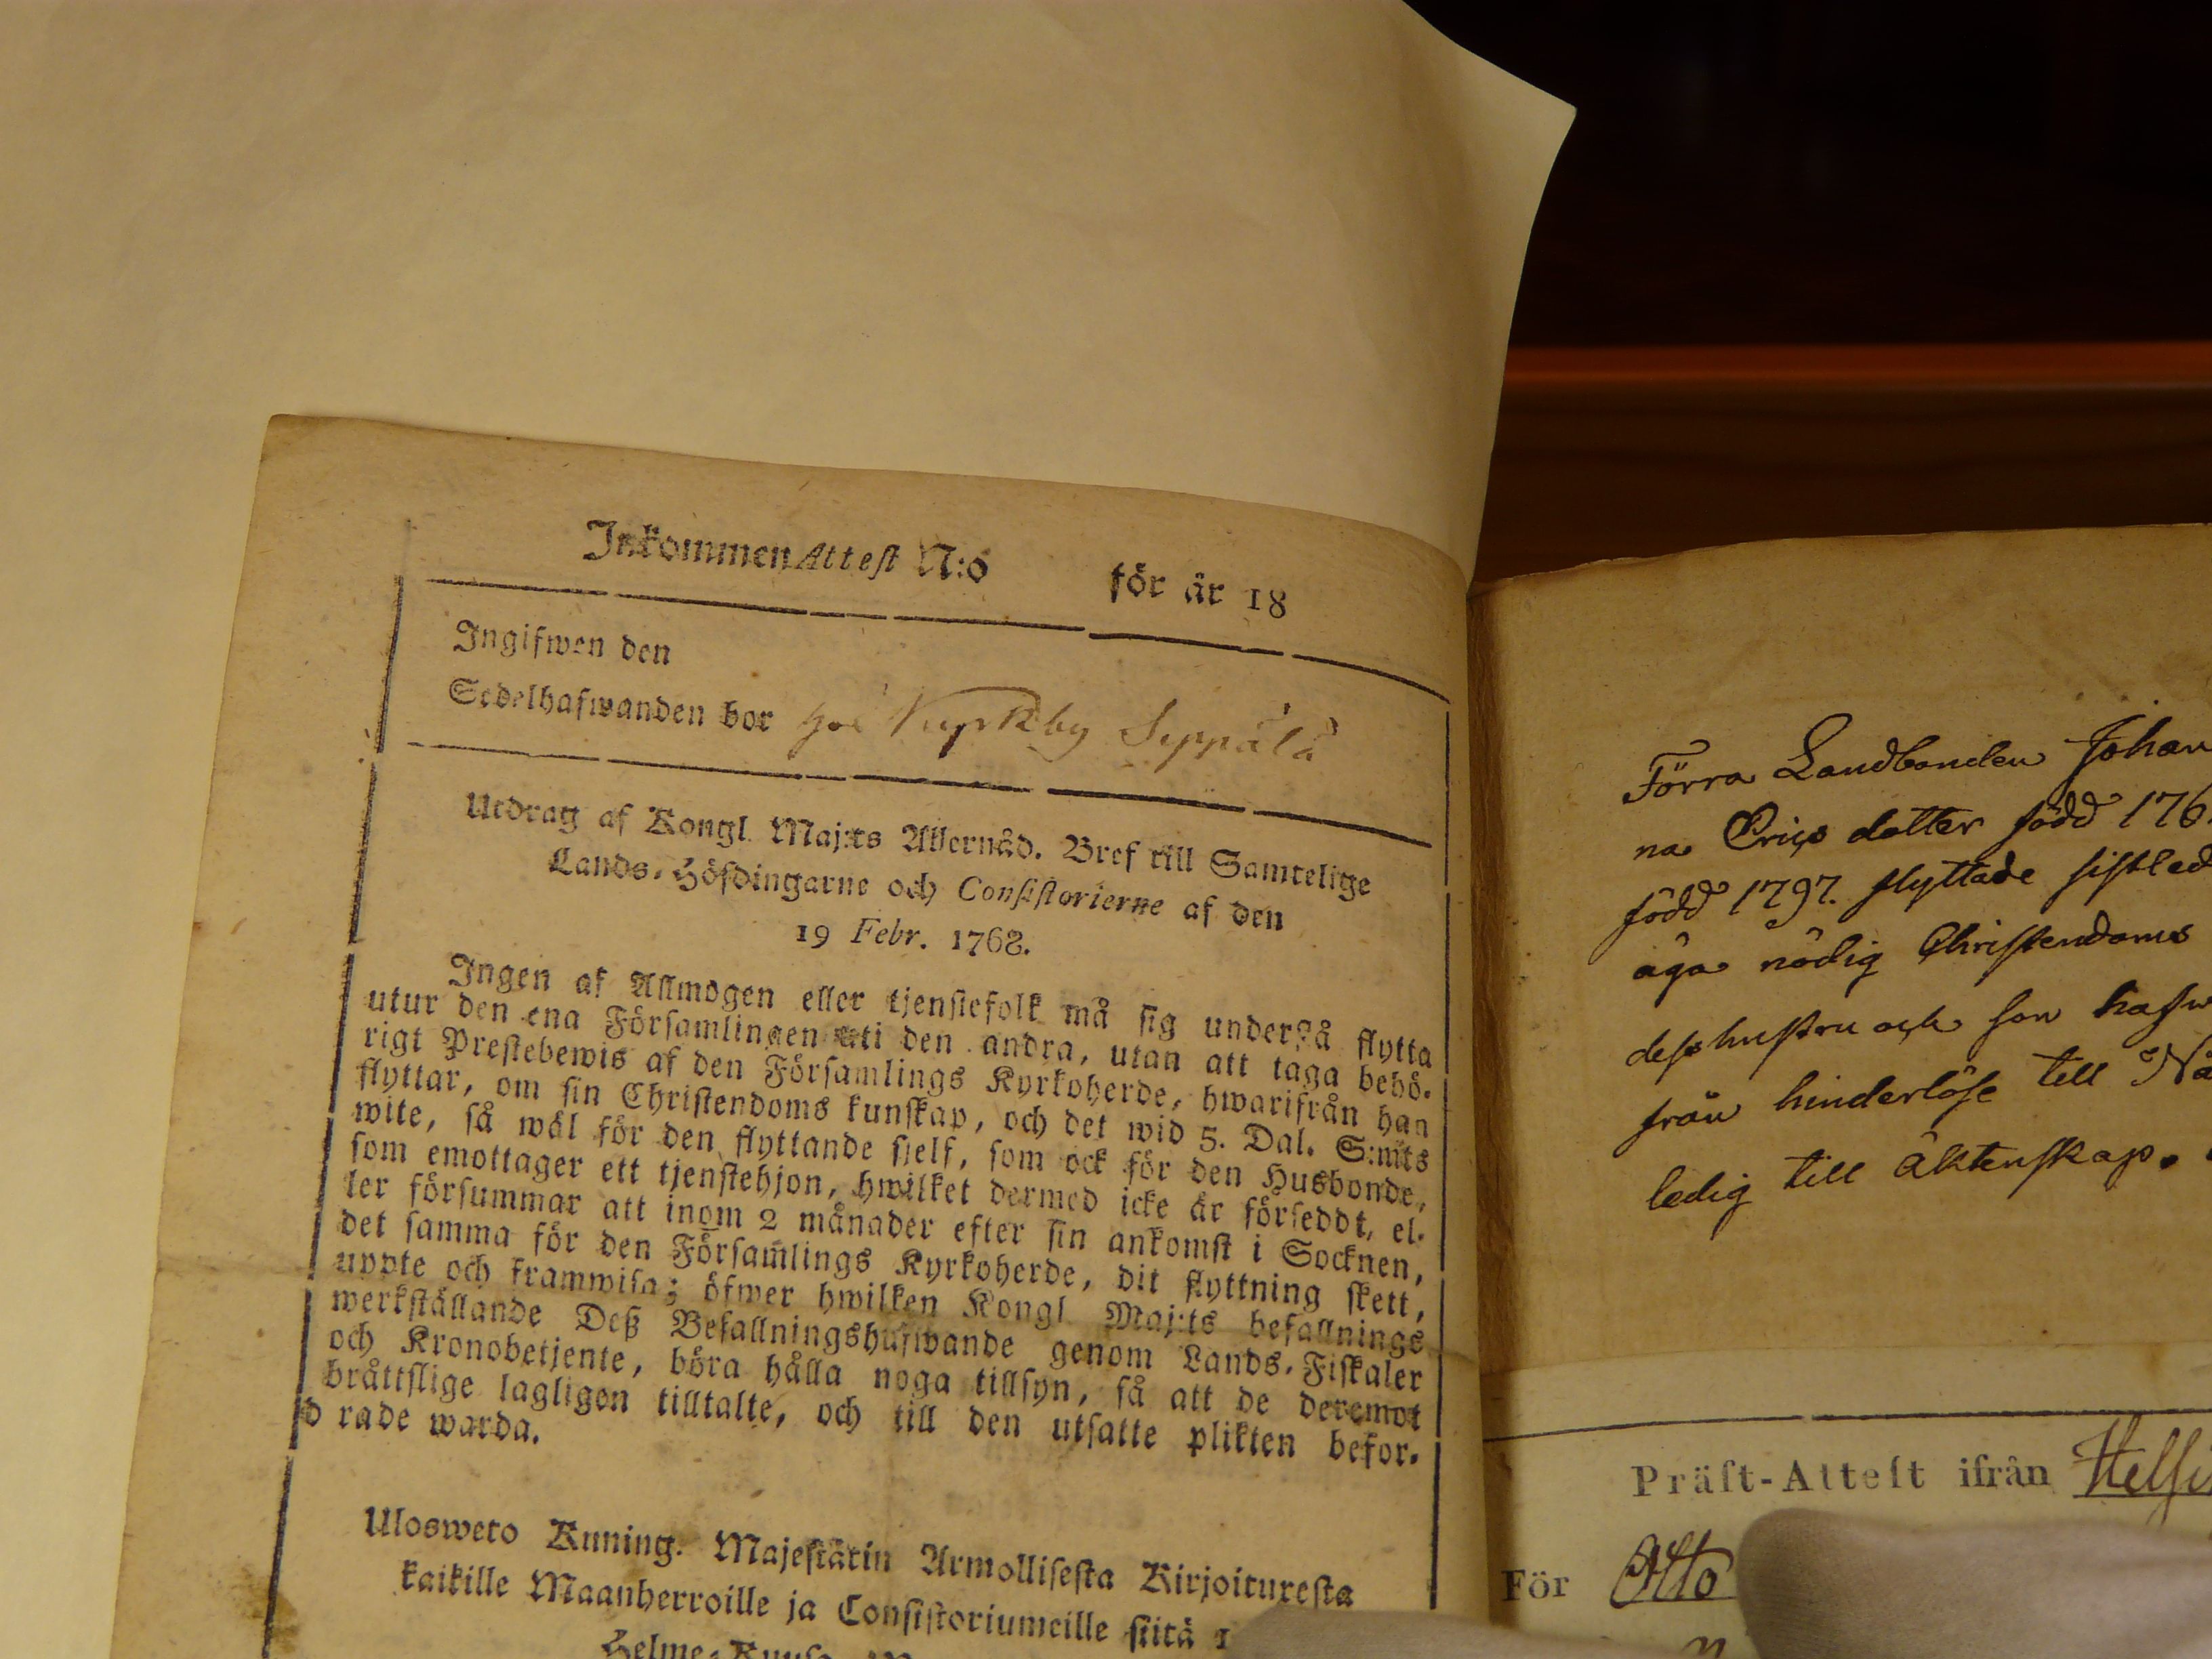 Inkommen Attest N:o för år 18
Ingifwen den
Sedelhafwanden bor hos Kyrkby Seppälä
Utdrag af Kongl. Maj:ts Allernåd. Bref till Samtelige
Lands-Höfdingarne och Consistorierne af den
19 Febr. 1768.
Ingen af Allmogen eller tjenstefolk må sig understå flytta
utur den ena Församlingen uti den andra, utan att taga behö-
rigt Prestebewis af den Församlings Kyrkoherde, hwarifrån han
flyttar, om sin Christendoms kunskap, och det wid 5. Dal. S:mts
wite, så wäl för den flyttande sjelf, som ock för den Husbonde,
som emottager ett tjenstehjon, hwilket dermed icke är försedt, el-
ler försummar att inom 2 månader efter sin ankomst i Socknen,
det samma för den Församlings Kyrkoherde, dit flyttning skett,
uppte och framwisa; öfwer hwilken Kongl Maj:ts befallnings
werkställande Deß Befallningshafwande genom Lands-Fiskaler
och Kronobetjente, böra hålla noga tillsyn, så att de deremot
bråttslige lagligen tilltalte, och till den utsatte plikten befor-
d rade warda.
Ulosweto Kuning. Majestätin Armollisesta Kirjoituxesta
kaikille Maanherroille ja Consistoriumeille siitä 1
Helme-Kuusa
Förra Landbonden Johan
na Erics dotter född 176
född 1797. flyttade sistled
äga nödig Christendoms
dess hustru och son hafw
från hinderlöse till Nå
ledig till äktenskap.
Präst-Attest ifrån Helsi
För Otto